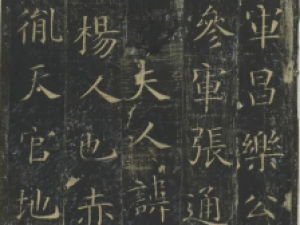 軍昌樂公
參軍張通
夫人諱
楊人也赤
胤天官地